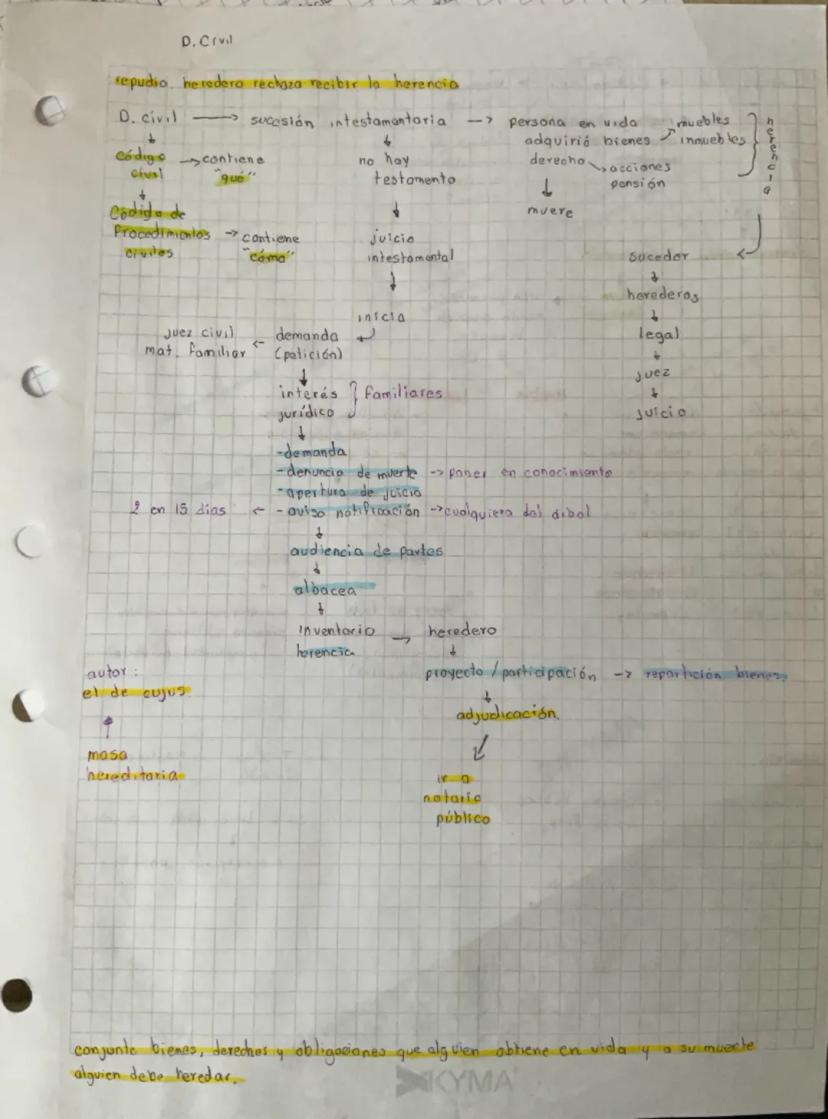 D. Civil
repudio. heredero rechaza recibir la herencia
D. civil → sucesión intestamentaria → persona en vida muebles
adquirió bienes → inmuebles
herencia
código → contiene no hay derecho → acciones
civil "qué" testamento ↓ pensión
muere
Código de
Procedimientos → contiene juicio
civiles "cómo" intestamental sucedor
↓
herederos
↓
inicia legal
juez civil ← demanda
mat. familiar (petición) juez
↓
interés } familiares
jurídico juicio
↓
- demanda
- denuncia de muerte → poner en conocimiento
- apertura de juicio
2 en 15 días ← - aviso notificación → cualquiera del árbol
↓
audiencia de partes
↓
albacea
↓
inventario → heredero
herencia ↓
autor: proyecto / participación → repartición bienes
el de cujus. ↓
adjudicación.
↑
masa
hereditaria ir a
notario
público
conjunto bienes, derechos y obligaciones que alguien obtiene en vida y a su muerte
alguien debe heredar.
KYMA